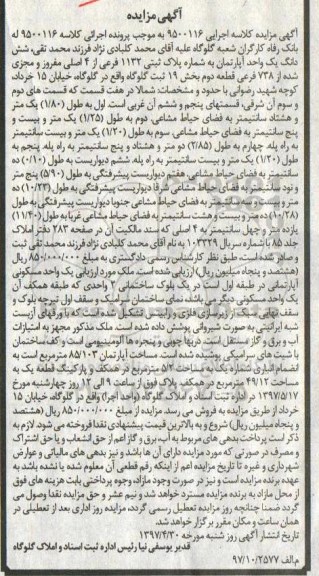 آگهی مزایده
آگهی مزایده کلاسه اجرایی ۹۵۰۰۱۱۶ به موجب پرونده اجرائی کلاسه ۹۵۰۰۱۱۶ له
بانک رفاه کارگران شعبه گلوگاه علیه آقای محمد کلبادی نژاد فرزند محمد تقی، شش
دانگ یک واحد آپارتمان به شماره پلاک ثبتی ۱۱۳۲ فرعی از ۴ اصلی مفروز و مجزی
شده از ۷۳۸ فرعی قطعه دوم بخش ۱۹ ثبت گلوگاه واقع در گلوگاه، خیابان ۱۵ خرداد
کوچه شهید رضوانی با حدود و مشخصات: شمالا در هفت قسمت که قسمت های دوم
و سوم آن شرقی، قسمتهای پنجم و ششم آن غربی است. اول به طول (۱/۸۰) یک متر
و هشتاد سانتیمتر به فضای حیاط مشاعی. دوم به طول (۱/۲۵) یک متر و بیست و
پنج سانتیمتر به فضای حیاط مشاعی. سوم به طول (۱/۲۰) یک متر و بیست سانتیمتر
به راه پله. چهارم به طول (۲/۸۵) دو متر و هشتاد و پنج سانتیمتر به راه پله. پنجم به
طول (۱/۲۰) یک متر و بیست سانتیمتر به راه پله. ششم دیواریست به طول (۰/۱۰) ده
سانتیمتر به فضای حیاط مشاعی. هفتم دیواریست پیشرفتگی به طول (۵/۹۰) پنج متر
و نود سانتیمتر به فضای حیاط مشاعی شرقا دیواریست پیشرفتگی به طول (۱۰/۲۳) ده
متر و بیست و سه سانتیمتر به فضای حیاط مشاعی جنوبا دیواریست پیشرفتگی به طول
(۱۰/۲۸) ده متر و بیست و هشت سانتیمتر به فضای حیاط مشاعی غربا به طول (۱۱/۴۰)
یازده متر و چهل سانتیمتر به ۴ اصلی که سند مالکیت آن در صفحه ۲۸۳ دفتر املاک
جلد ۸۵ با شماره سریال ۱۰۳۳۲۹ به نام آقای محمد کلبادی نژاد فرزند محمد تقی ثبت
و صادر شده است، طبق نظر کارشناس رسمی دادگستری به مبلغ ۸۵۰/۰۰۰/۰۰۰ ریال
(هشتصد و پنجاه میلیون ریال) ارزیابی شده است. ملک مورد ارزیابی یک واحد مسکونی
آپارتمانی در طبقه اول است در یک بلوک ساختمانی ۲ واحدی که طبقه همکف آن
یک واحد مسکونی دیگر می باشد. نمای ساختمان سرامیک و سقف اول تیرچه بلوک و
سقف نهایی سبک از زیرسازی فلزی و رابیتس تشکیل شده است که با ورقهای آزبست
شبه ایرانیتی به صورت شیروانی پوشش داده شده است. ملک مذکور مجهز به امتیازات
آب و برق و گاز مستقل است. دربها چوبی و پنجره ها آلومینیومی است و کف ساختمان
با شیت های سرامیکی پوشیده شده است. مساحت آپارتمان ۸۵/۱۰۳ مترمربع است به
انضمام انباری شماره یک به مساحت ۵/۴ مترمربع در همکف و پارکینگ قطعه یک به
مساحت ۴۹/۱۲ مترمربع در همکف پلاک فوق از ساعت ۹ الی ۱۲ روز چهارشنبه مورخ
۱۳۹۷/۵/۱۷ در اداره ثبت اسناد و املاک گلوگاه (واحد اجرا) واقع در گلوگاه، خیابان ۱۵
خرداد از طریق مزایده به فروش می رسد. مزایده از مبلغ ۸۵۰/۰۰۰/۰۰۰ ریال (هشتصد
و پنجاه میلیون ریال) شروع و به بالاترین قیمت پیشنهادی نقدا فروخته می شود. لازم به
ذکر است پرداخت بدهی های مربوط به آب، برق و گاز اعم از حق انشعاب و یا حق اشتراک
و مصرف در صورتی که مورد مزایده دارای آن ها باشد و نیز بدهی های مالیاتی و عوارض
شهرداری و غیره تا تاریخ مزایده اعم از اینکه رقم قطعی آن معلوم شده یا نشده باشد به
عهده برنده مزایده است و نیز در صورت وجود مازاد، وجوه پرداختی بابت هزینه های فوق
از محل مازاد به برنده مزایده مسترد خواهد شد و نیم عشر و حق مزایده نقدا وصول می
گردد ضمنا چنانچه روز مزایده تعطیل رسمی گردد، مزایده روز اداری بعد از تعطیلی در
همان ساعت و مکان مقرر برگزار خواهد شد.
تاریخ انتشار آگهی روز شنبه مورخه ۱۳۹۷/۴/۳۰
قدیر یوسفی نیا رئیس اداره ثبت اسناد و املاک گلوگاه
م.الف ۹۷/۱۰/۲۵۷۷